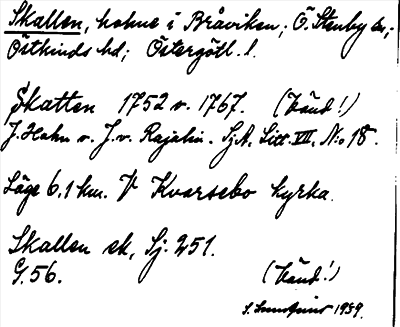 Skallen, holme i Bråviken; Ö. Stenby sn;
Östkinds hd; Östergötl. l.
Skatten 1752 o. 1767. (känd!)
J. Hahn o. J. v. Rajalin. Sj.A. Litt. VII, N:o 18.
Läge 6.1 km. V Kvarsebo kyrka.
Skallen ek, Sj. 251.
G. 56. (känd!)
1959.